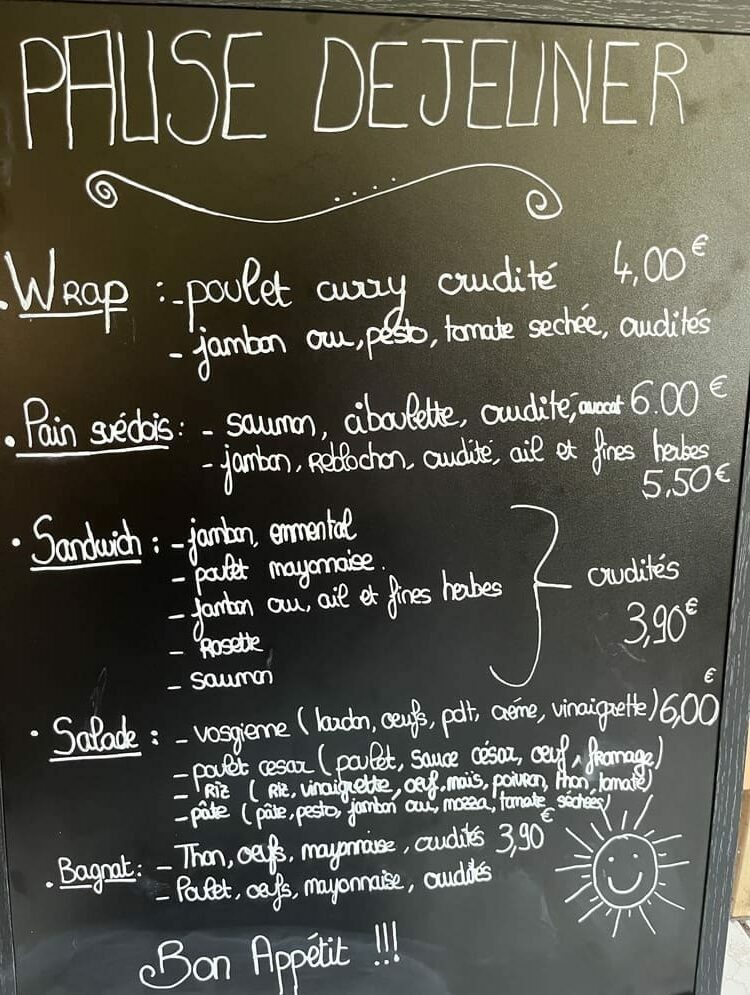 PAUSE DEJEUNER
. Wrap : - poulet curry crudité 4,00€
- jambon cru, pesto, tomate sechée, crudités
. Pain suédois : - saumon, ciboulette, crudité, avocat 6.00 €
- jambon, Reblochon, crudité, ail et fines herbes
5,50€
. Sandwich : - jambon, emmental
- poulet mayonnaise.
- jambon cru, ail et fines herbes
crudités
3,90€
- Rosette
- saumon
. Salade : - vosgienne (lardon, oeufs, pdt, crème, vinaigrette) 6,00€
- poulet cesar (poulet, sauce césar, oeuf, fromage)
- Riz (Riz, vinaigrette, oeuf, maïs, poivron, thon, tomate)
- pâte (pâte, pesto, jambon cru, mozza, tomate séchées)
. Bagnat : - Thon, oeufs, mayonnaise, crudités 3,90€
- Poulet, oeufs, mayonnaise, crudités
Bon Appétit !!!